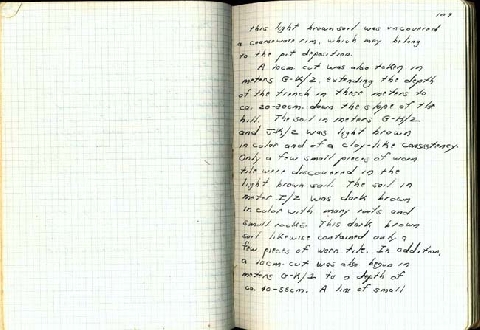 this light brown soil was uncovered
a coarseware rim, which may belong
to the pot deposition.
A 10cm cut was also taken in
meters G-K/2, extending the depth
of the trench in these meters to
ca. 20-30cm. down the slope of the
hill. The soil in meters G-H/2
and J-K/2 was light brown
in color and of a clay-like consistency.
Only a few small pieces of worn
tile were discovered in the
light brown soil. The soil in
meter I/2 was dark brown
in color with many roots and
small rocks. This dark brown
soil likewise contained only a
few pieces of worn tile. In addition,
a 10cm cut was also begun in
meters G-K/2 to a depth of
ca. 40-50cm. A line of small